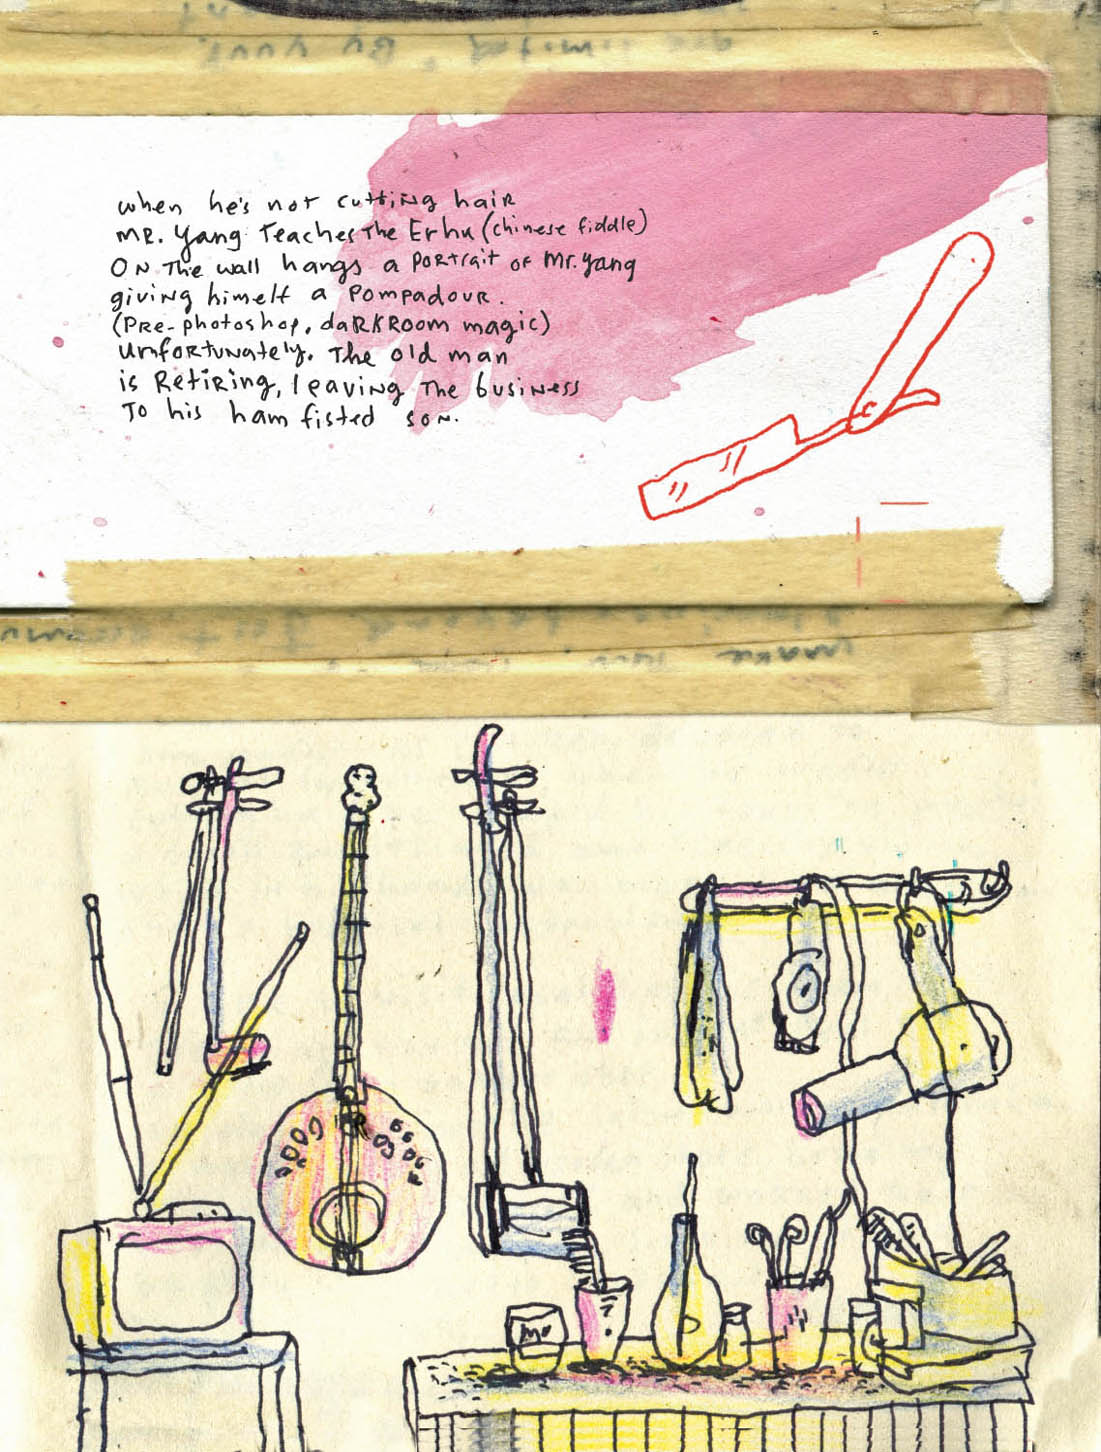 when he's not cutting hair
MR. Yang Teaches The Erhu (chinese fiddle)
ON The wall hangs a PORTRAIT OF MR. Yang
giving himelf a POMPADOUR.
(PRE-photoshop, daRKROOM magic)
UNfORTUNATEly. The old man
is RETIRING, leaving The business
To his ham fisted SON.